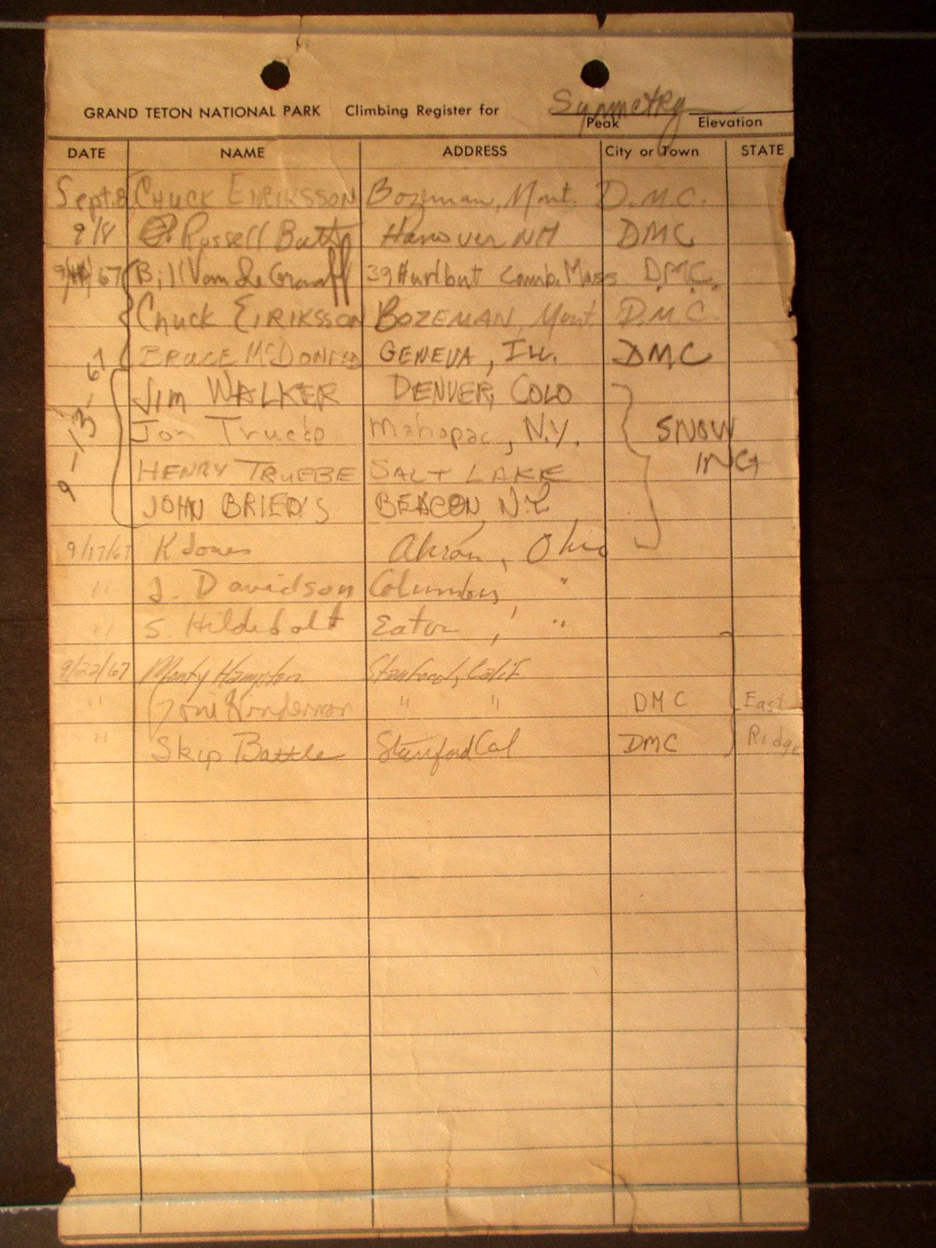 Symmetry
GRAND TETON NATIONAL PARK Climbing Register for Peak Elevation
DATE NAME ADDRESS City or Town STATE
Sept. 8 CHUCK EIRIKSSON Bozeman, Mont. D.M.C.
9/8 Russell Batt Hanover NH DMC
67 Bill Van de Graaff 39 Hurlbut Camb. Mass D.M.C.
Chuck EIRIKSSON BOZEMAN, Mont D.M.C.
BRUCE McDONALD GENEVA, ILL. DMC
9-13-67 JIM WALKER DENVER, COLO
Jon Mahopac, N.Y. SNOW
HENRY TRUEBE SALT LAKE ING
JOHN BRIED'S BEACON, N.Y.
9/17/67 K Jones Akron, Ohio
" J. Davidson Columbus, "
" S. Hildebolt Eaton, "
9/22/67 Monty Hampton Stanford, Calif
" " " DMC East
" Skip Battle Stanford Cal DMC Ridge